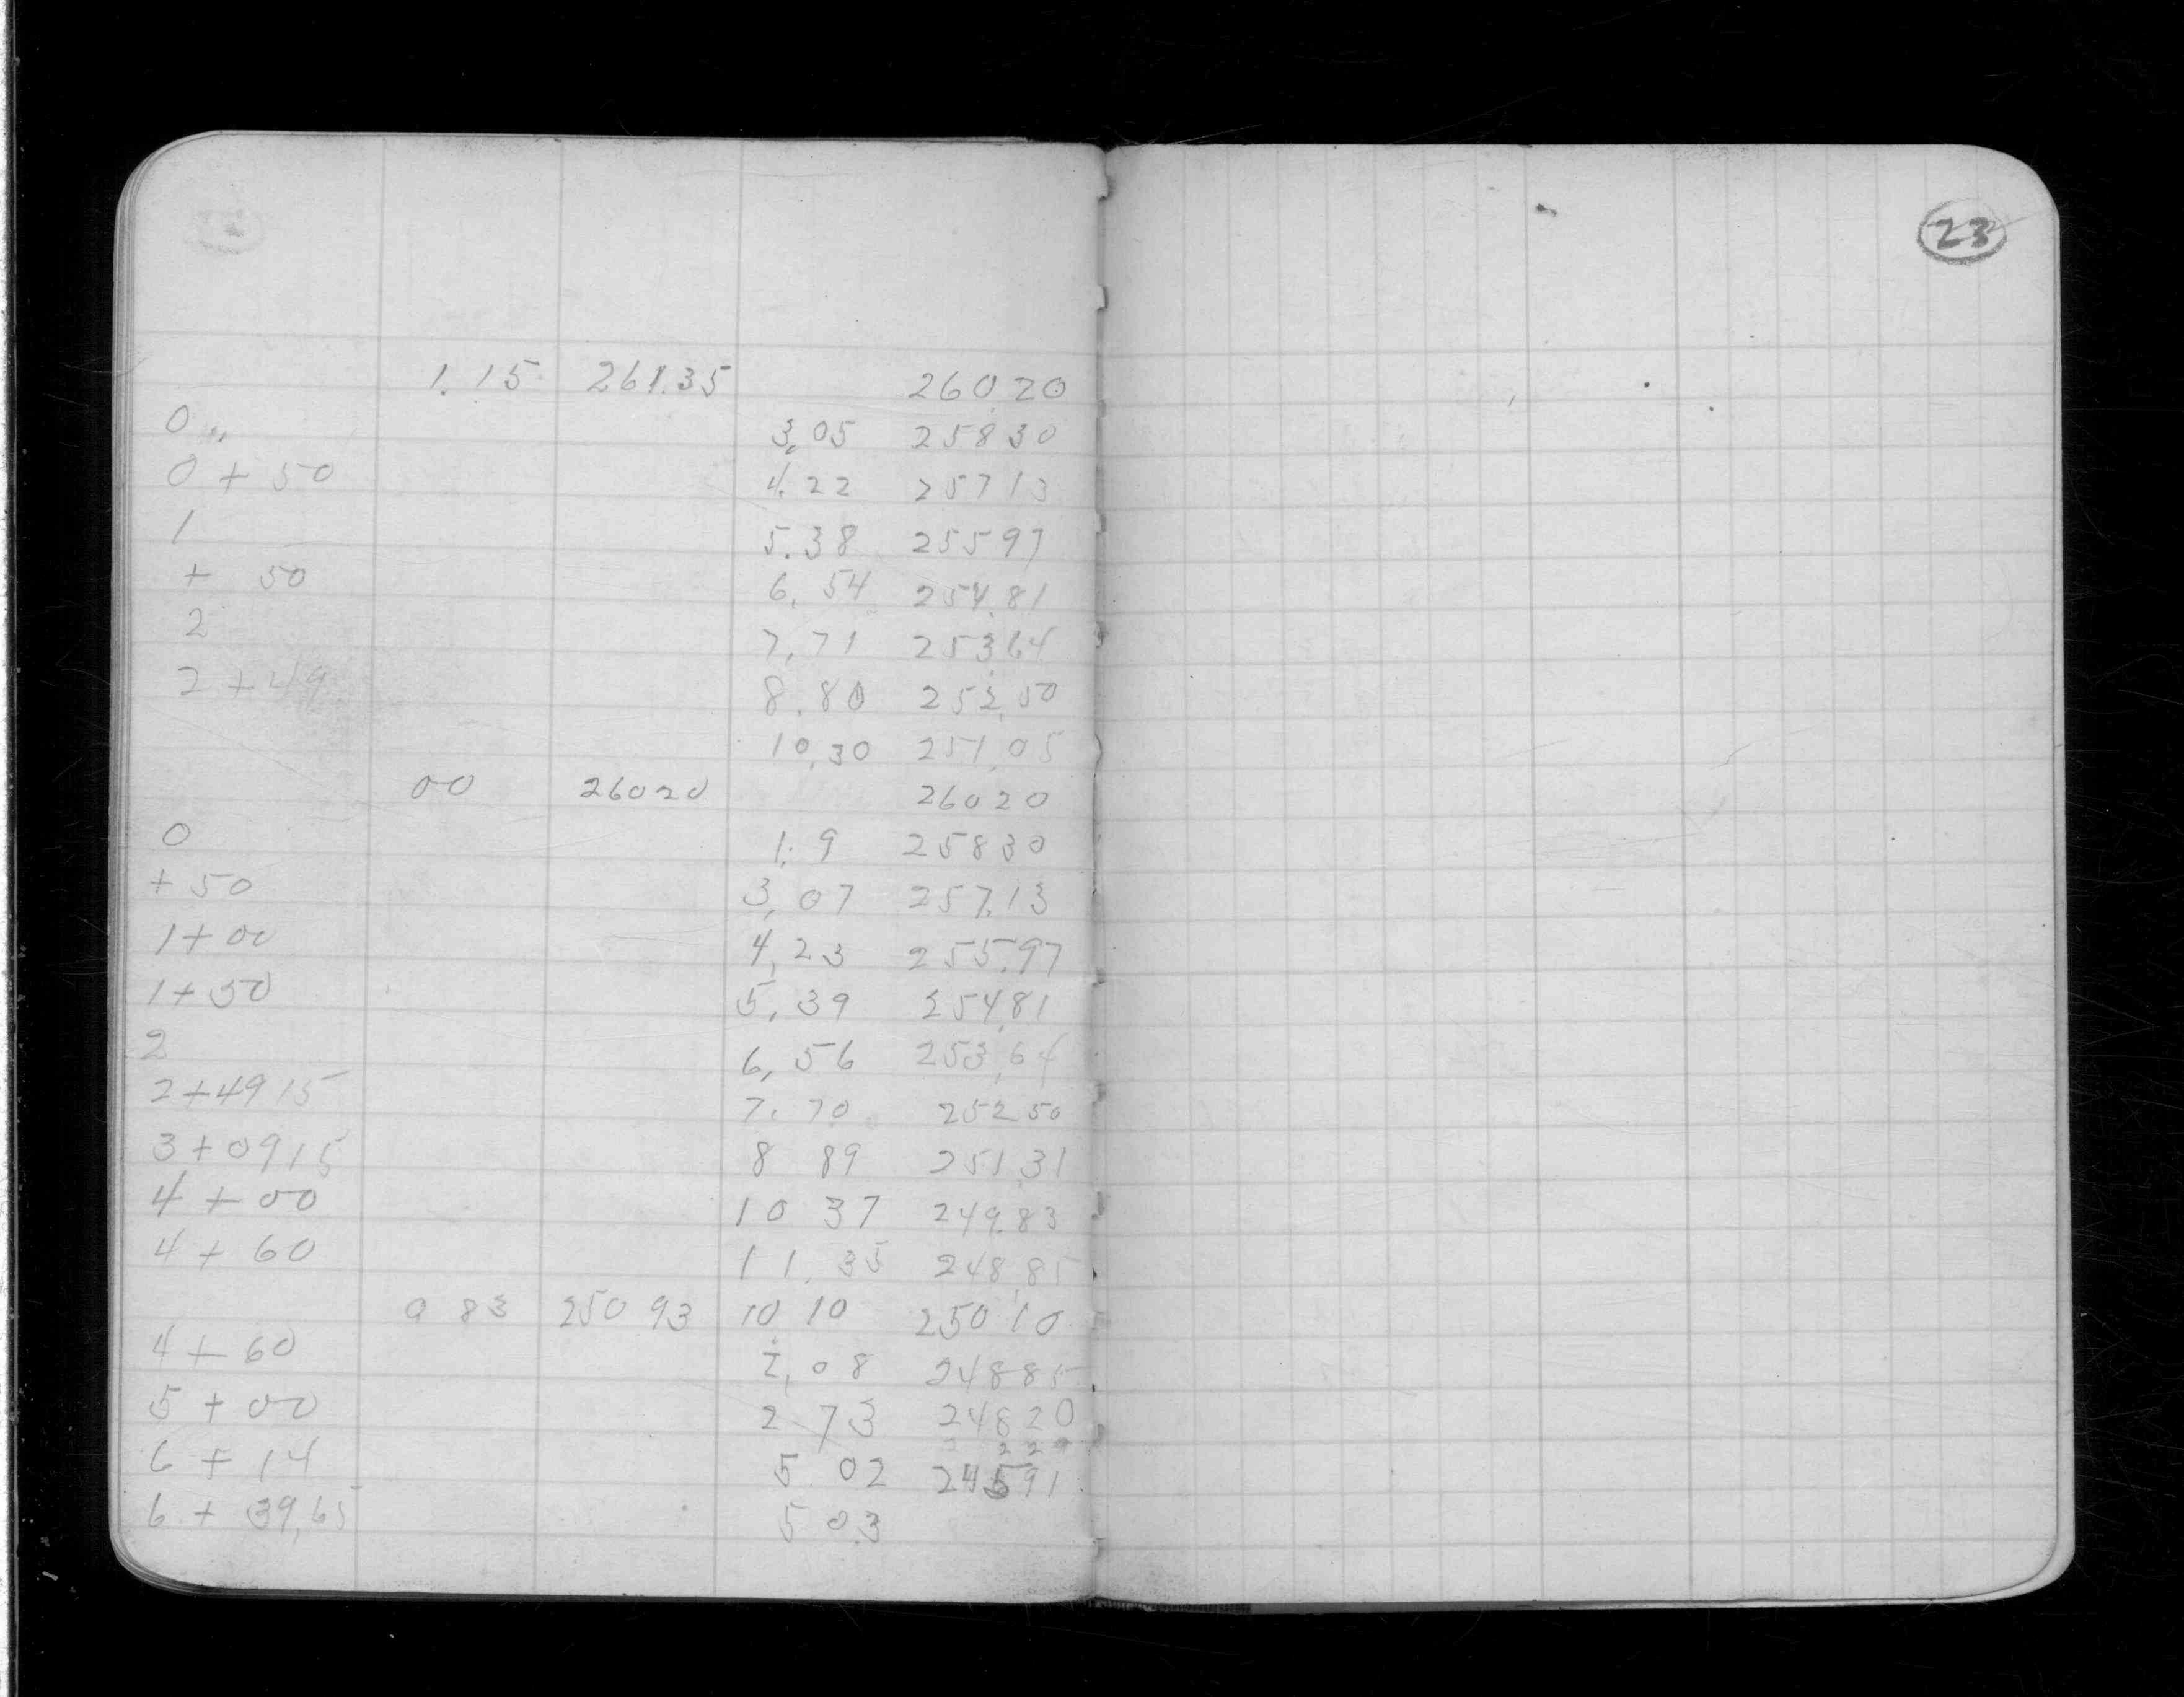 23
1.15 261.35 260.20
0 3.05 258 30
0 + 50 4.22 257 13
1 5.38 255 97
+ 50 6.54 254.81
2 7.71 253.64
2 + 49 8.80 252.50
10.30 251.05
00 260 20 260 20
0 1.9 258 30
+ 50 3.07 257.13
1+00 4.23 255.97
1+50 5.39 254.81
2 6.56 253.64
2+49 15 7.70 252 50
3+09 15 8 89 251.31
4 + 00 10 37 249.83
4 + 60 11.35 248.85
0 83 250 93 10 10 250 10
4 + 60 2.08 248 85
5 + 00 2 73 248 20
2 29
6 + 14 5.02 245 91
6 + 39.65 5 03